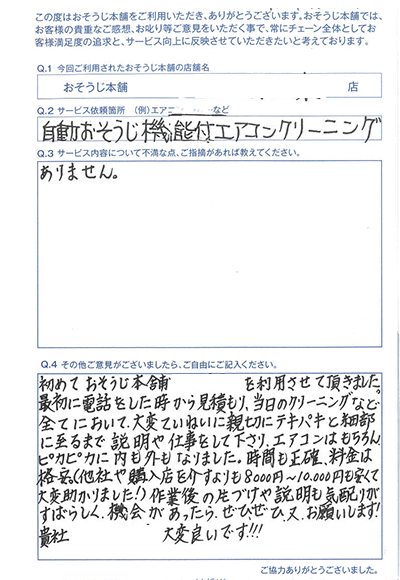 この度はおそうじ本舗をご利用いただき、ありがとうございます。おそうじ本舗では、
お客様の貴重なご感想、お叱り等ご意見をいただく事で、常にチェーン全体としてお
客様満足度の追求と、サービス向上に反映させていただきたいと考えております。
Q.1 今回ご利用されたおそうじ本舗の店舗名
おそうじ本舗 店
Q.2 サービス依頼箇所 (例)エアコン など
自動おそうじ機能付エアコンクリーニング
Q.3 サービス内容について不満な点、ご指摘があれば教えてください。
ありません。
Q.4 その他ご意見がございましたら、ご自由にご記入ください。
初めて おそうじ本舗 を利用させて頂きました。
最初に電話をした時から見積もり、当日のクリーニングなど
全てにおいて、大変ていねいに親切にテキパキと細部
に至るまで説明や仕事をして下さり、エアコンはもちろん
ピカピカに内も外もなりました。時間も正確、料金は
格安(他社や購入店を介すよりも8000円〜10.000円も安くて
大変助かりました!)作業後の片づけや説明も気配りが
すばらしく、機会があったら、ぜひぜひ、又、お願いします!
貴社 大変良いです!!!
ご協力ありがとうございました。